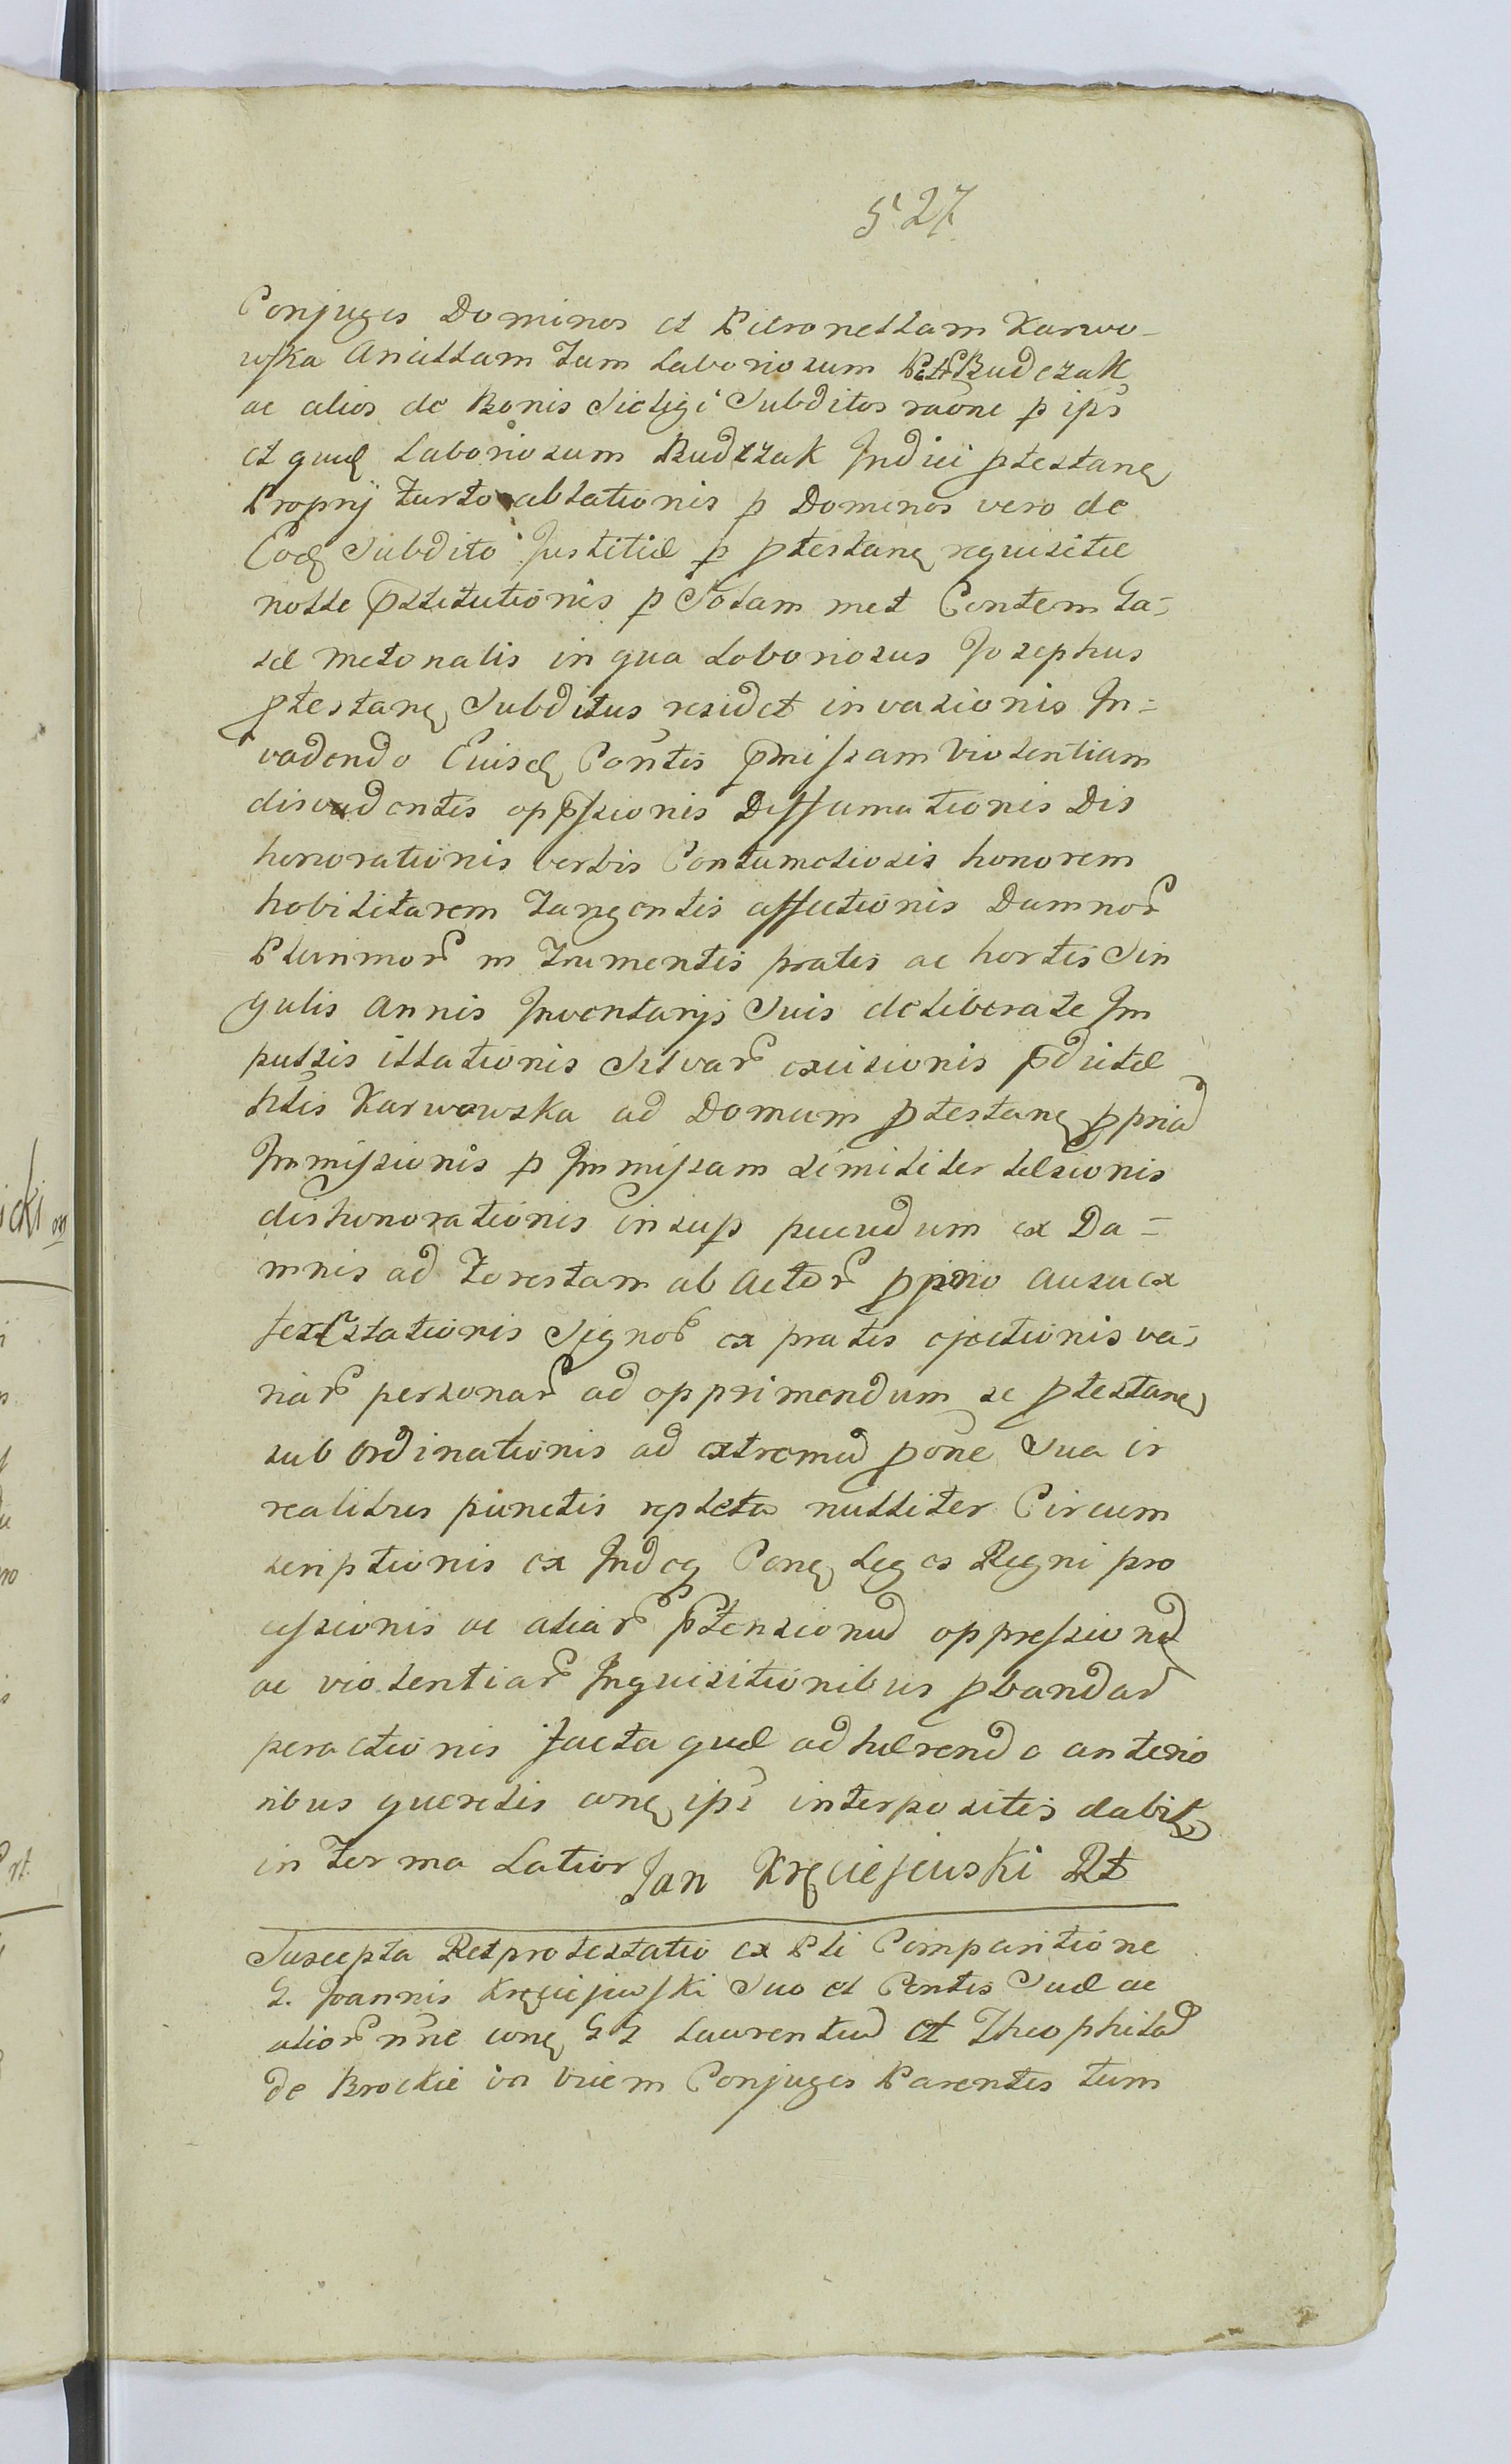 527
Conjuges Dominos et Petronellam Karwo-
wska Ancillam Tum Laboriosum Petr Budczak
ac alios de Bonis Sieligi Subditos raōne p ips
et quid Laboriosum Budczak Indici ptestanę
Proprij furto ablationis p Dominos vero de
Eodę Subdito Justitiæ p ptestanę requisitæ
nolle p̄stitutionis p Solam met Contem Ca-
sæ Metonalis in qua Laboriosus Josephus
ptestanę Subditus residet invasionis In-
vadendo Eiusdę Contis p̄missam Violentiam
disvadentis opp̄ssionis Diffamationis Dis
honorationis verbis Contumeliosis honorem
Nobilitarem Tangentis affectionis Damnor
Plurimor in frumentis pratis ac hortis Sin
gulis Annis Inventarijs Suis deliberate Im
pulsis illationis Silvar excisionis p̄dictæ
Nlis Karwowska ad Domum ptestanę ppriad
Immissionis p Immissam similiter læsionis
dishonorationis insup pecudum ex Da-
mnis ad forestam ab Actor pprio ausu ex
Signor ex pratis ejectionis va-
riar personar ad opprimendum se ptestanę
sub ordinationis ad extremud pone Sua ir
realibus punctis repleta nulliter Circum
scriptionis ex Indeq Conę Leges Regni pro
cessionis ac aliar p̄tensionud oppressionud
ac violentiar Inquisitionibus pbandar
peractionis facta quæ adhærendo anterio
ribus querelis conę ips interpositis dabitę
in forma Latior Jan Kręciejewski Rt
Suscepta Retprotestatio ex Pli Comparitione
G. Joannis Kręciejewski Suo et Contis Suæ ac
alior nn̄e conę G G Laurentiud et Theophilad
de Brockie in Vicem Conjuges Parentes tum